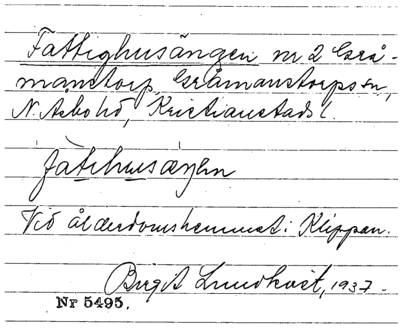 Fattighusängen nr 2 Grå-
manstorp, Gråmanstorps sn,
N. Åsbo hd, Kristianstads l.
fàtihusæŋen
Vid ålderdomshemmet i Klippan.
Birgit Lundkvist, 1937.
Nr 5495.